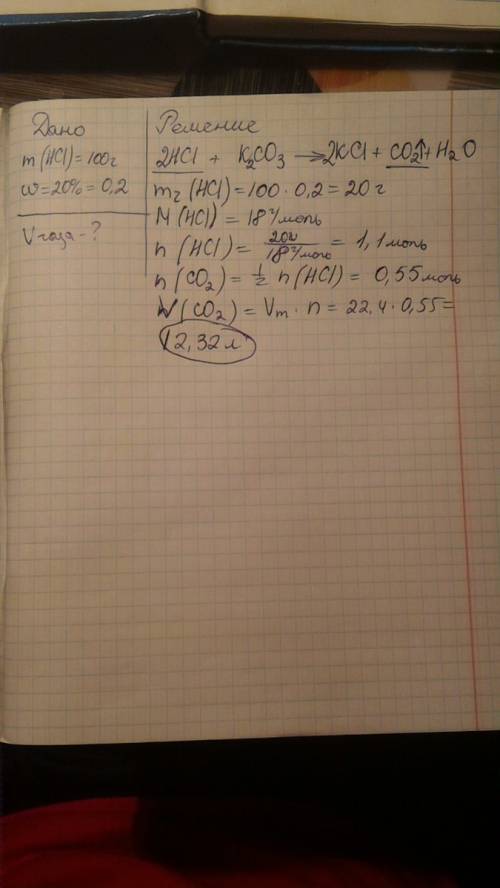 Дано
m (HCl) = 100г
w=20% = 0,2
V газа - ?
Решение
2HCl + K₂CO₃ → 2KCl + CO₂↑ + H₂O
m₂ (HCl) = 100 · 0,2 = 20 г
M (HCl) = 18 г/моль
n (HCl) = 20г / 18 г/моль = 1,1 моль
n (CO₂) = ½ n (HCl) = 0,55 моль
V (CO₂) = Vm · n = 22,4 · 0,55 =
12,32 л